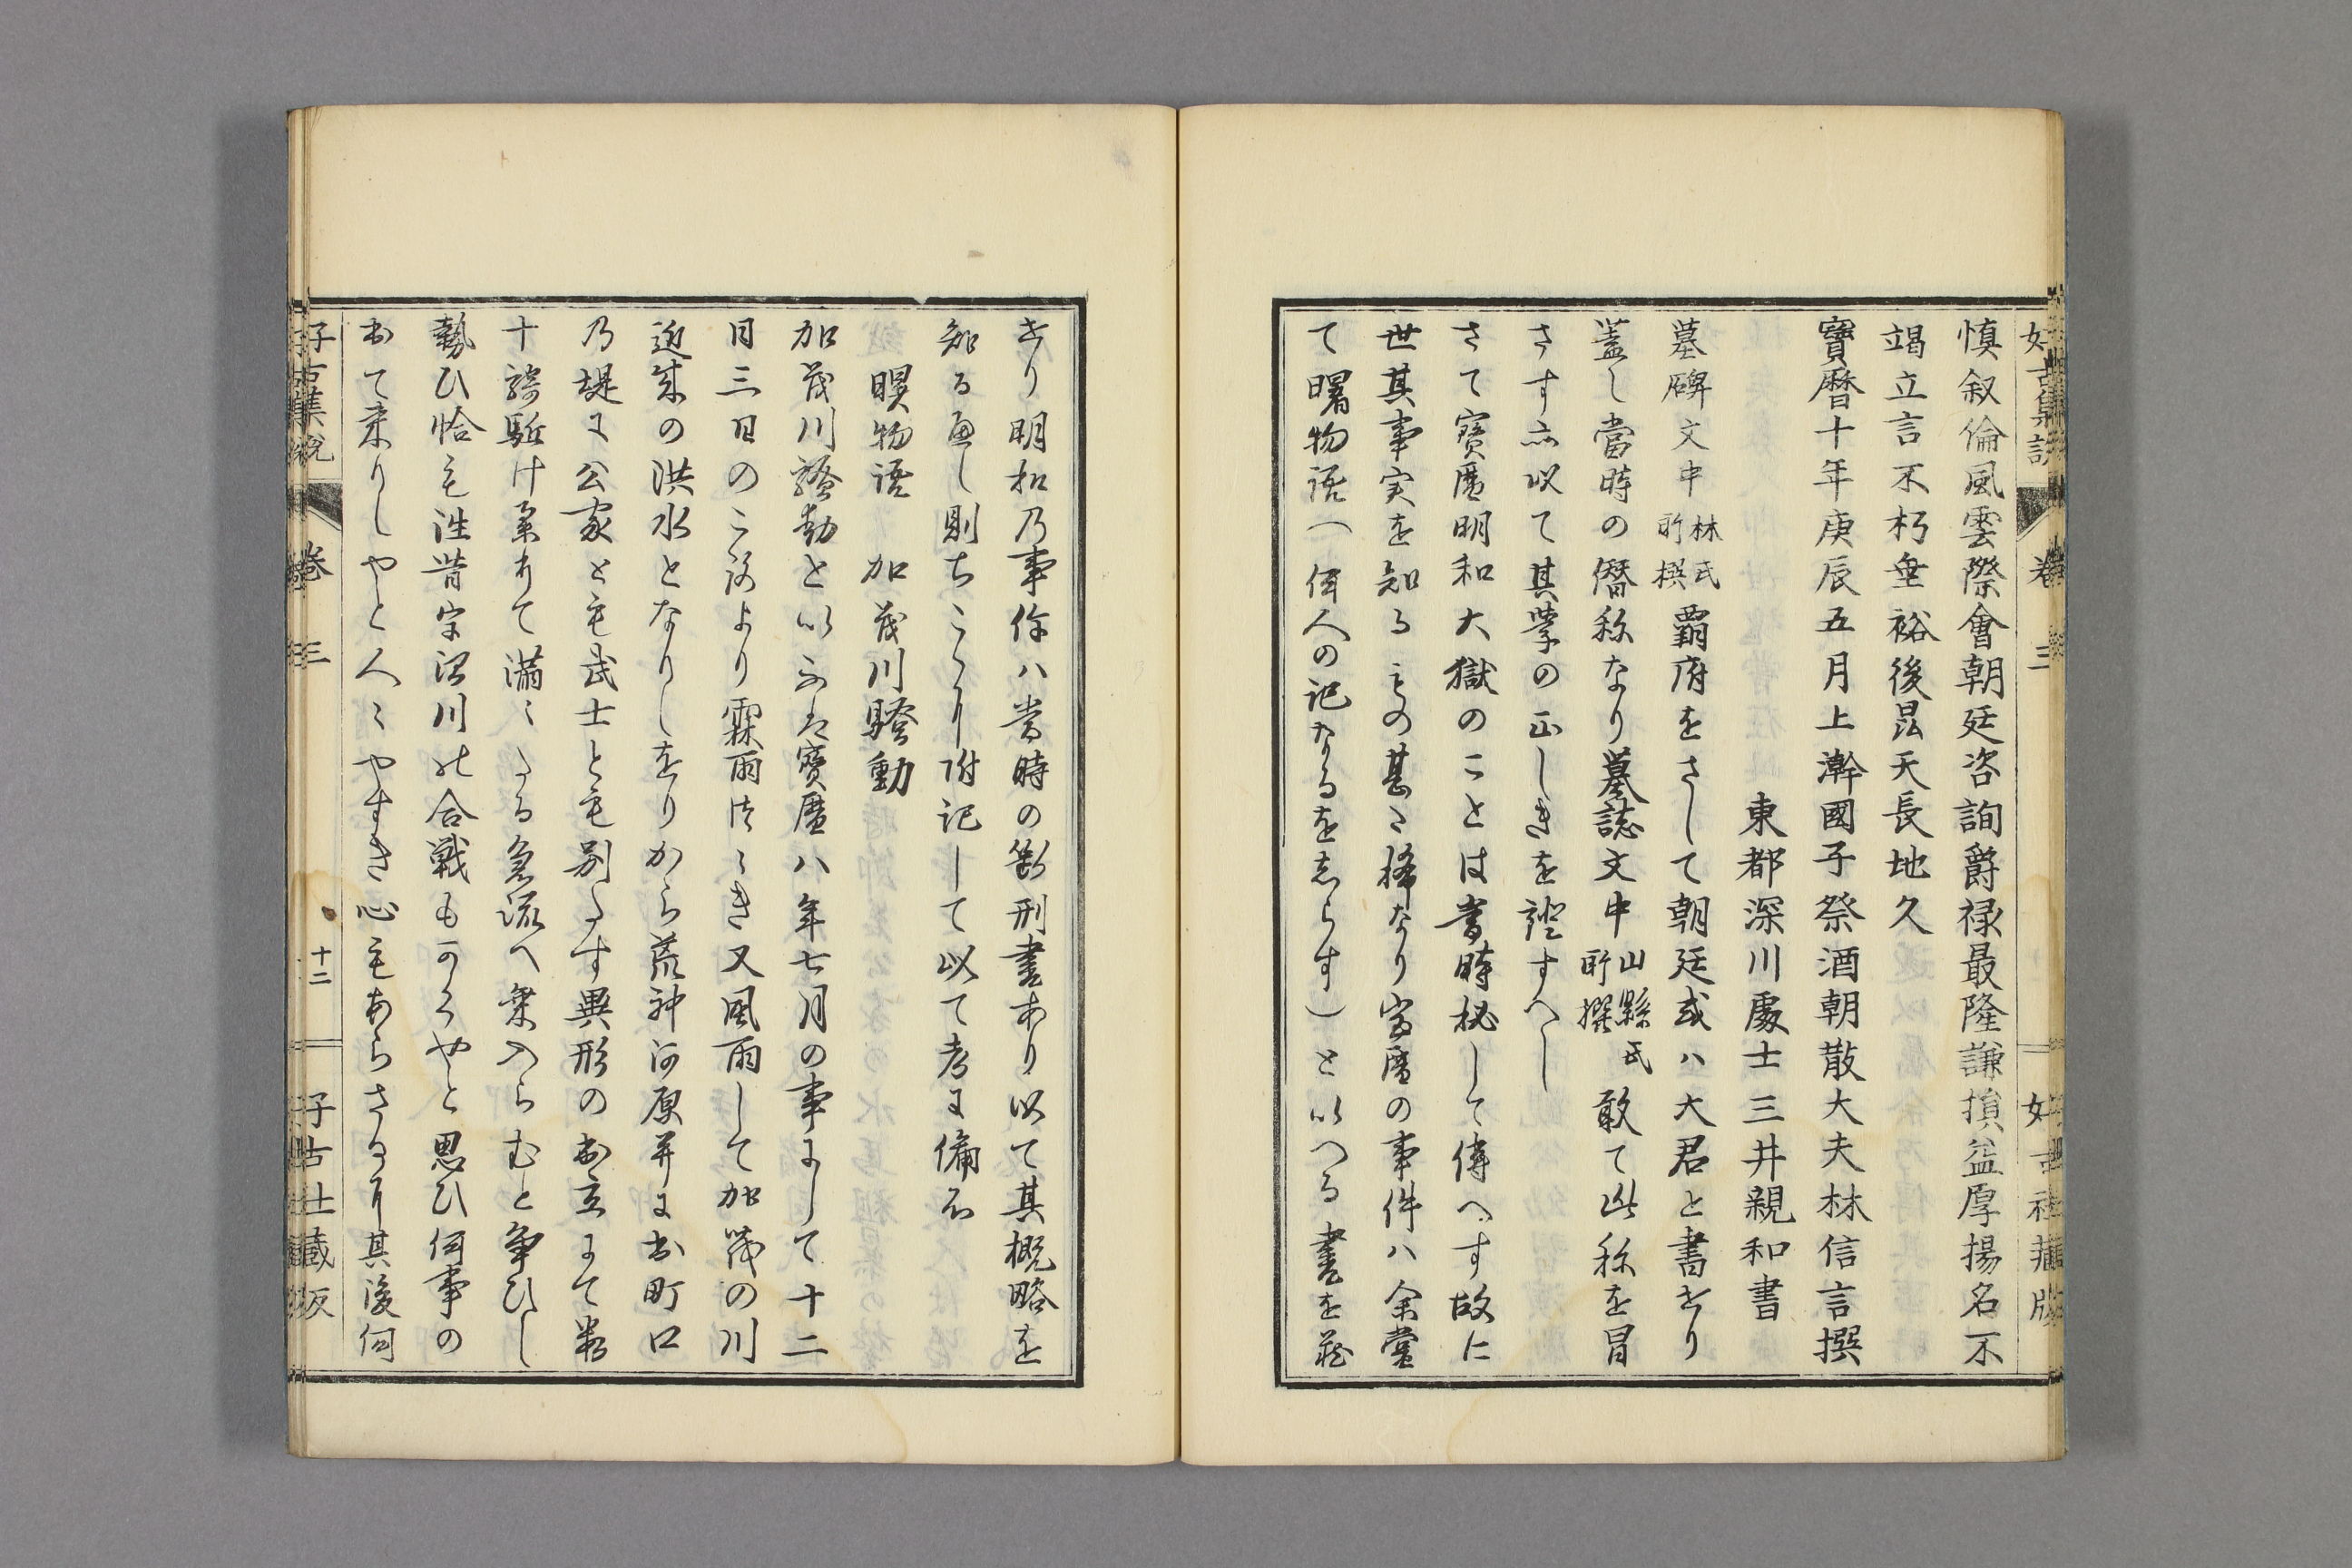 好古集説 卷三 好古社藏版
慎叙倫風雲際會朝廷咨詢爵禄最隆謙損益厚揚名不
竭立言不朽垂裕後昆天長地久
寶曆十年庚辰五月上澣國子祭酒朝散大夫林信言撰
東都深川處士三井親和書
墓碑文中林氏所撰覇府をさして朝廷或ハ大君と書せり
蓋し當時の僭称なり墓誌文中山縣氏所撰敢て此称を冒
さす亦以て其学の正しきを證すへし
さて寳暦明和大獄のことは當時秘して傳へす故に
世其事実を知るもの甚た稀なり宝暦の事件ハ余嘗
て曙物語(何人の記なるを志らす)といへる書を蔵
せり明和乃事件ハ當時の断刑書あり以て其概略を
知る可し則ちこゝに附記して以て考に備ふ
曙物語 加茂川騒動
加茂川騒動といふは寳暦八年七月の事にして十二
日三日のころより霖雨つゝき又風雨して加茂の川
近年の洪水となりしをりから荒神河原并に出町口
乃堤に公家とも武士とも別たす異形の出立にて数
十騎駈け来りて満〻たる急流へ乗入らむと争ひし
勢ひ恰も往昔宇治川の合戦もかくやと思ひ何事の
出て来りしやと人〻やすき心もあらさるに其後何
好古集説 卷三 十二 好古社藏版